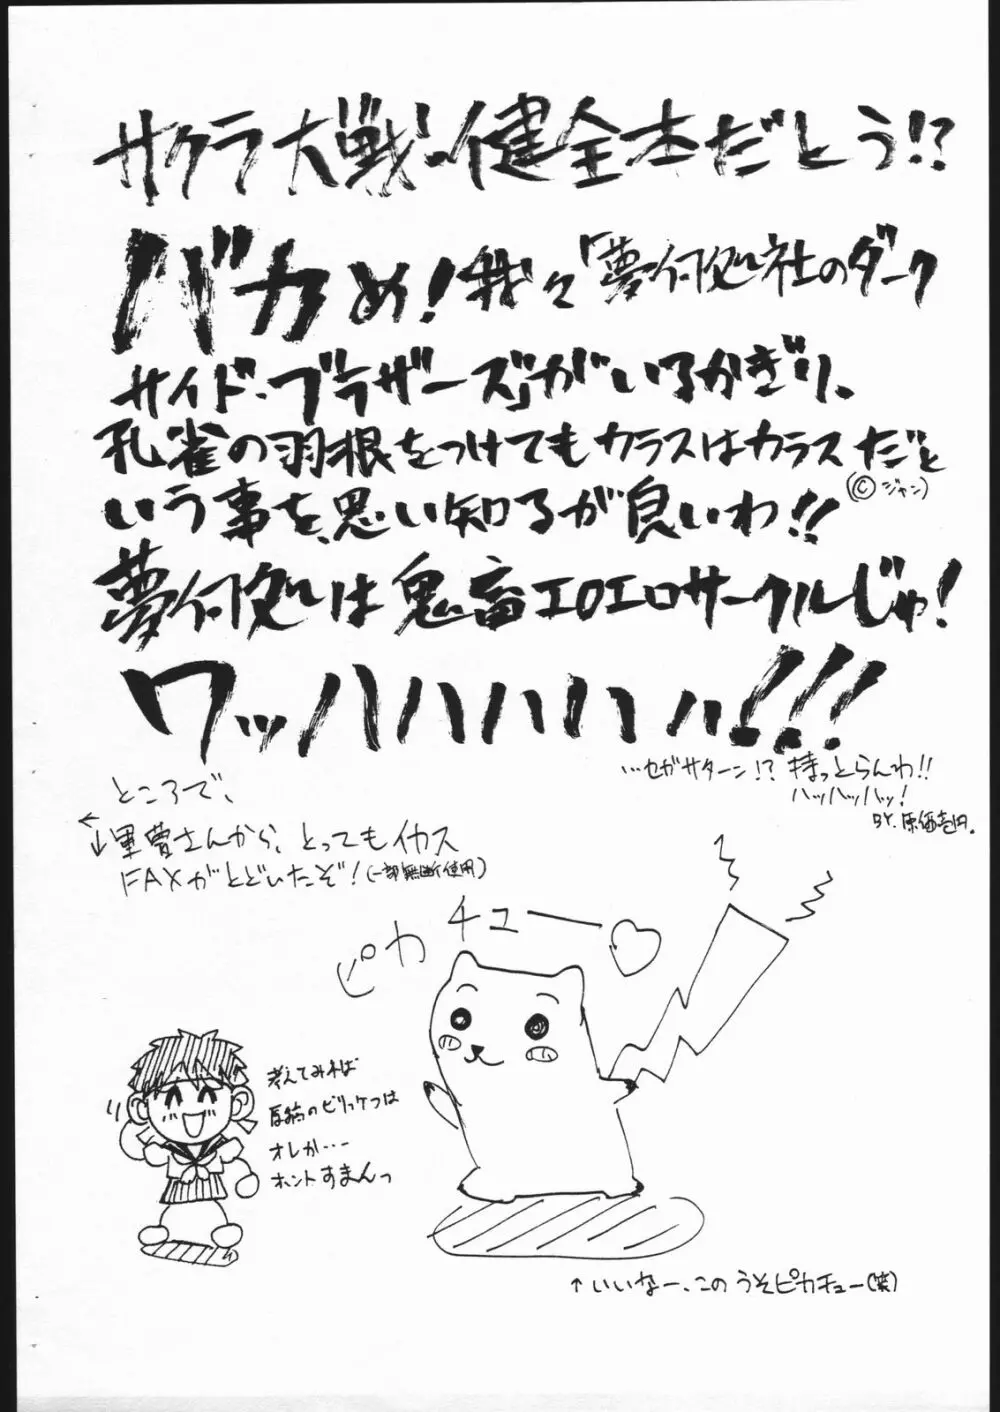 サクラ大戦で健全本だとう!?
バカめ!我々「夢何処社のダーク
サイド・ブラザーズ」がいるかぎり、
孔雀の羽根をつけてもカラスはカラスだと
(©ジャン)
いう事を、思い知るが良いわ!!
夢何処は鬼畜エロエロサークルじゃ!
ワッハハハハハッ!!!
…セガサターン!?持っとらんわ!!
ハッハッハッ!
BY.原価壱円。
ところで、
←↓里費さんから、とってもイカス
FAXがとどいたぞ!(一部無断使用)
ピカチュー♡
考えてみれば
原稿のビリッケつは
オレか…
ホントすまんっ
↑いいなー、このうそピカチュー(笑)